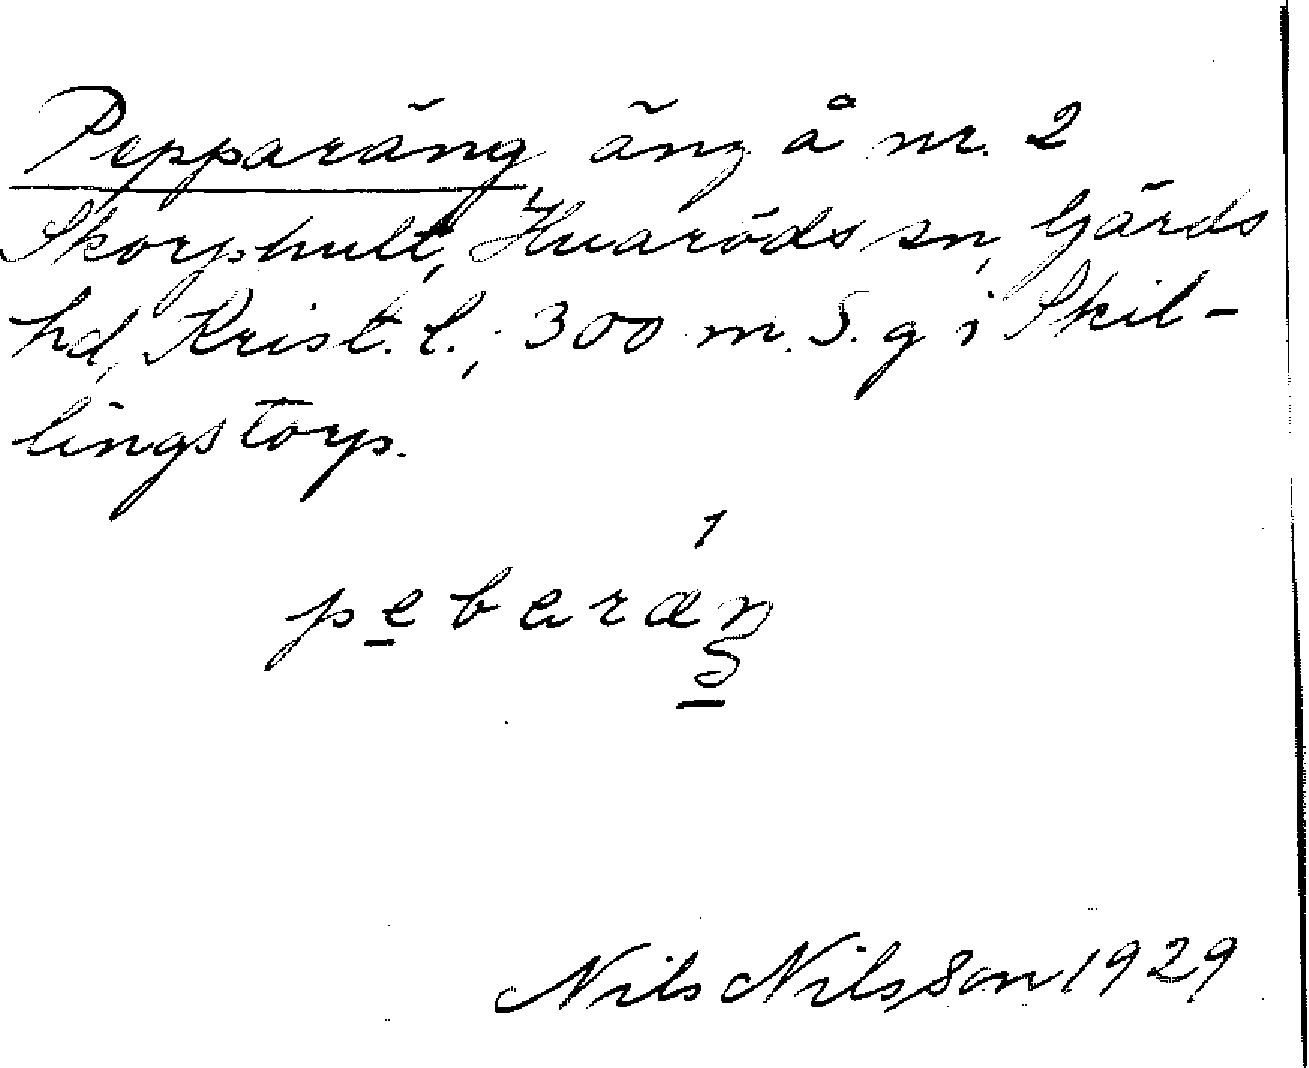 Pepparäng äng å nr. 2
Skorphult, Huaröds sn, Gärds
hd, Krist. l.; 300 m. S. g i Skil-
lingstorp.
pebaräŋ
Nils Nilsson 1929